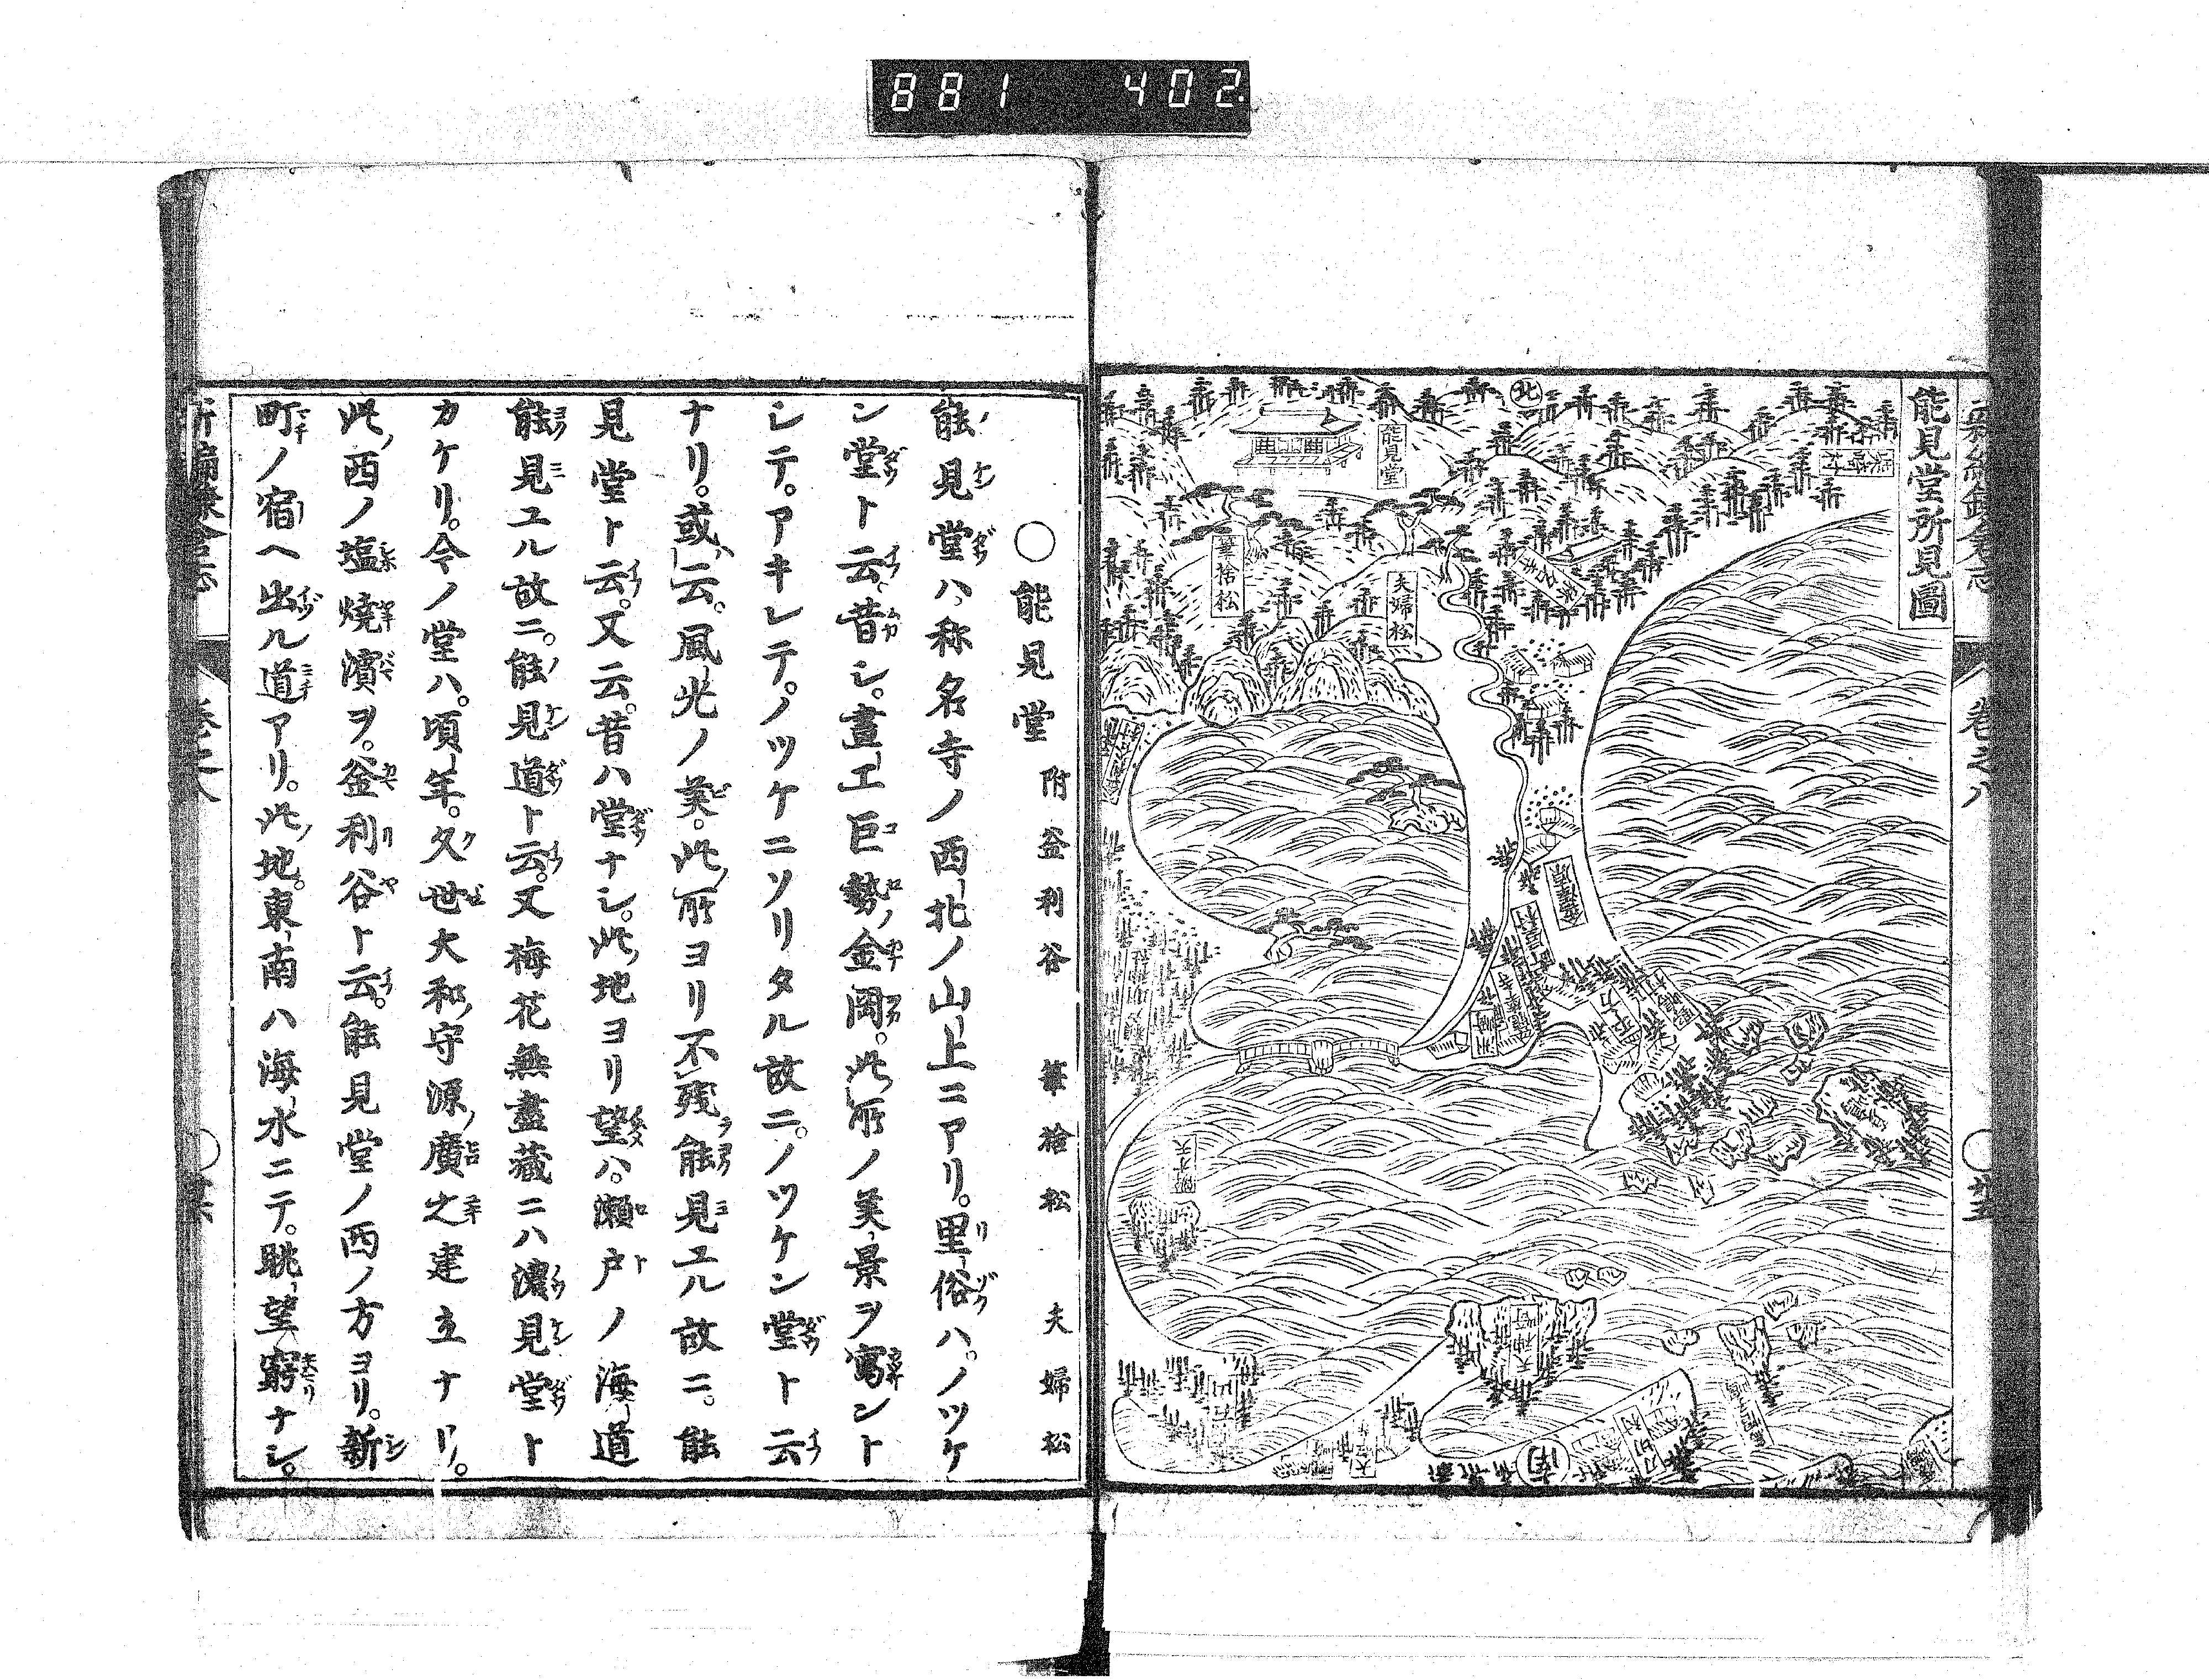 881 402
能見堂所見圖
北
能見堂
筆捨松
夫婦松
称名寺
天神﨑
刀切村
野嶋村
南
卷之八
○能見堂 附釜利谷 筆捨松 夫婦松
能見堂ハ、称名寺ノ西北ノ山上ニアリ。里俗ハ、ノツケ
ン堂ト云。昔シ。畫工巨勢金岡。此所ノ美景ヲ寫ント
シテ。アキレテ。ノツケニソリタル故ニ。ノツケン堂ト云
ナリ。或云。風光ノ美。此所ヨリ不残能見エル故ニ。能
見堂ト云。又云。昔ハ堂ナシ。此地ヨリ望ハ。瀬戸ノ海道
能見エル故ニ。能見道ト云。又梅花無盡藏ニハ濃見堂ト
カケリ。今ノ堂ハ。頃年。久世大和守源廣之建立ナリ。
此西ノ塩燒濱ヲ。釜利谷ト云。能見堂ノ西ノ方ヨリ。新
町ノ宿ヘ出ル道アリ。此地。東南ハ海水ニテ。眺望窮ナシ。